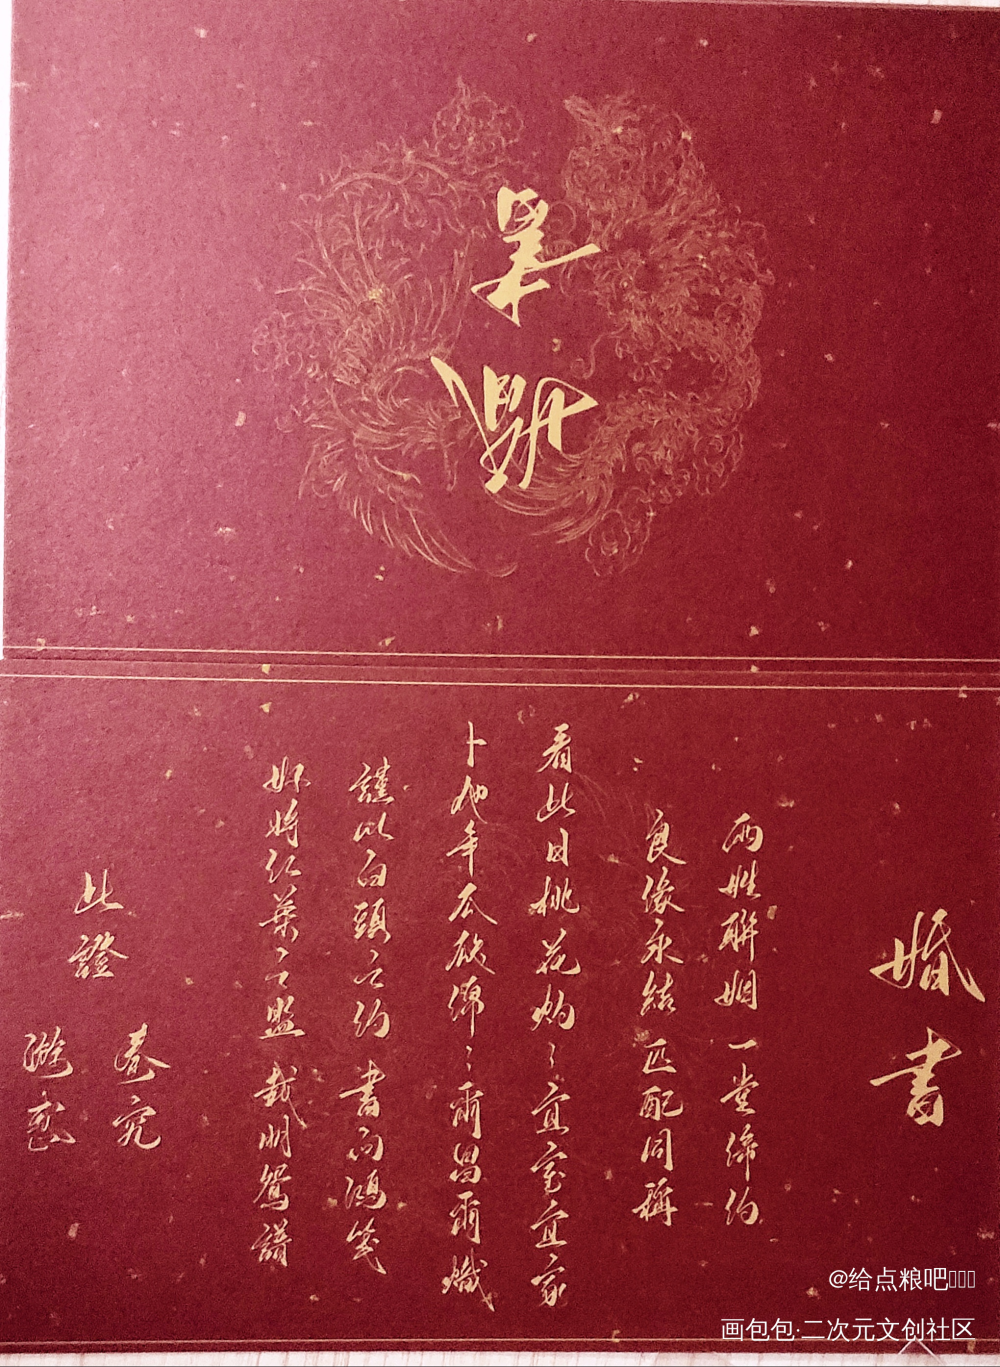 婚書
兩姓聯姻 一堂締約
良緣永結 匹配同稱
看此日桃花灼〻 宜室宜家
卜他年瓜瓞綿〻 爾昌爾熾
謹以白頭之約 書向鴻箋
好將紅葉之盟 載明鴛譜
此證
@给点粮吧
画包包·二次元文创社区